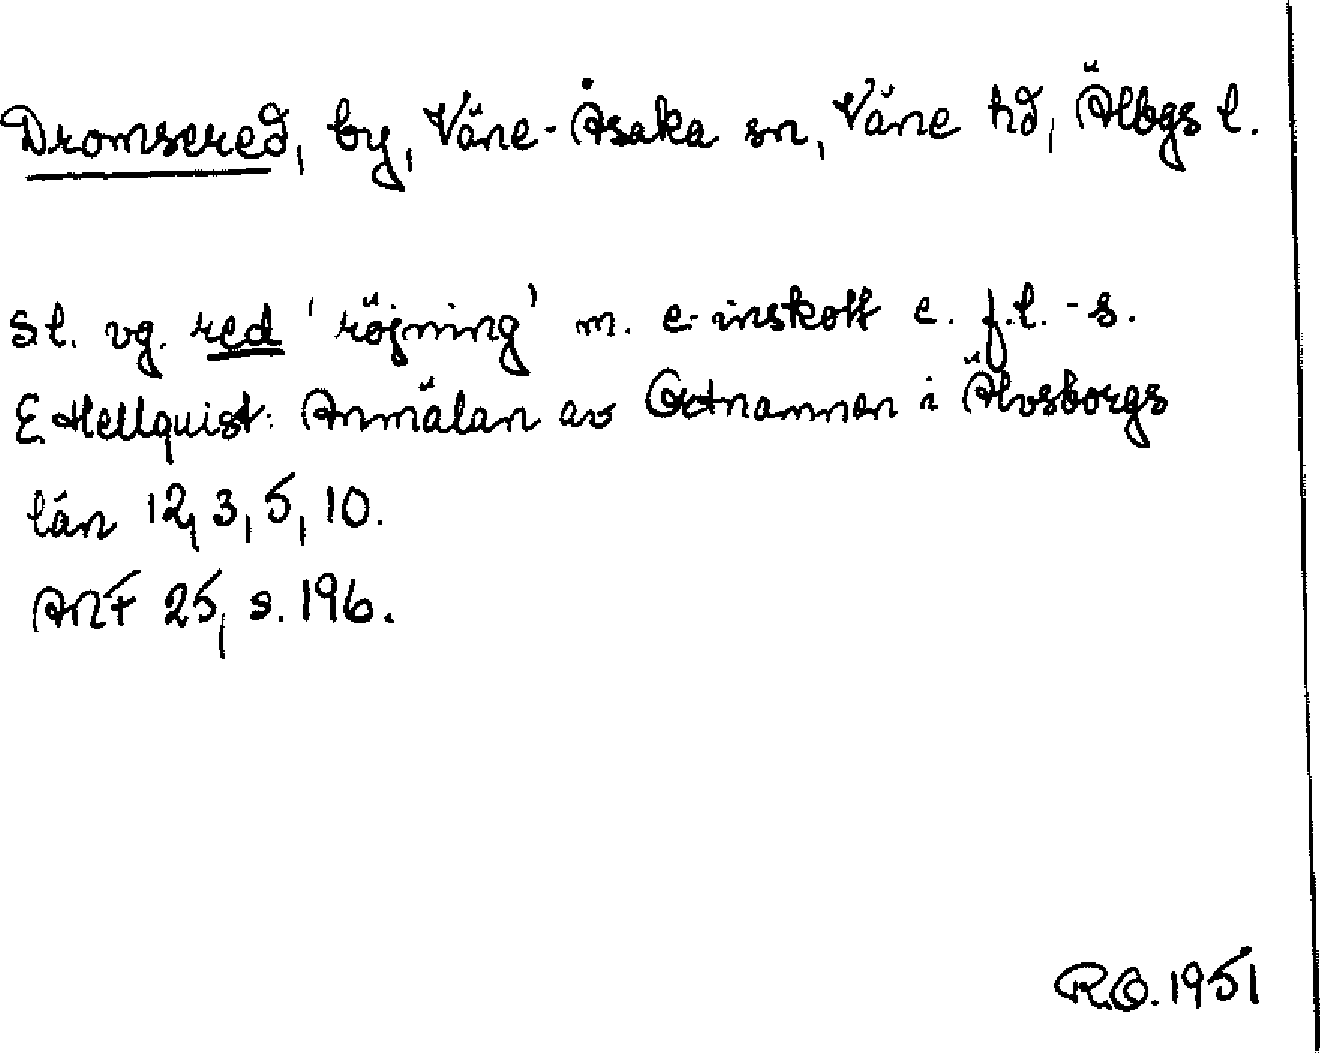 Dromsered, by, Väne-Åsaka sn, Väne hd, Älvbgs l.
Sl. vg. red 'röjning' m. e-inskott e. f.l. -s.
E. Hellquist: Anmälan av Ortnamnen i Älvsborgs
län 12, 3, 5, 10.
ANF 25, s. 196.
R.O. 1951